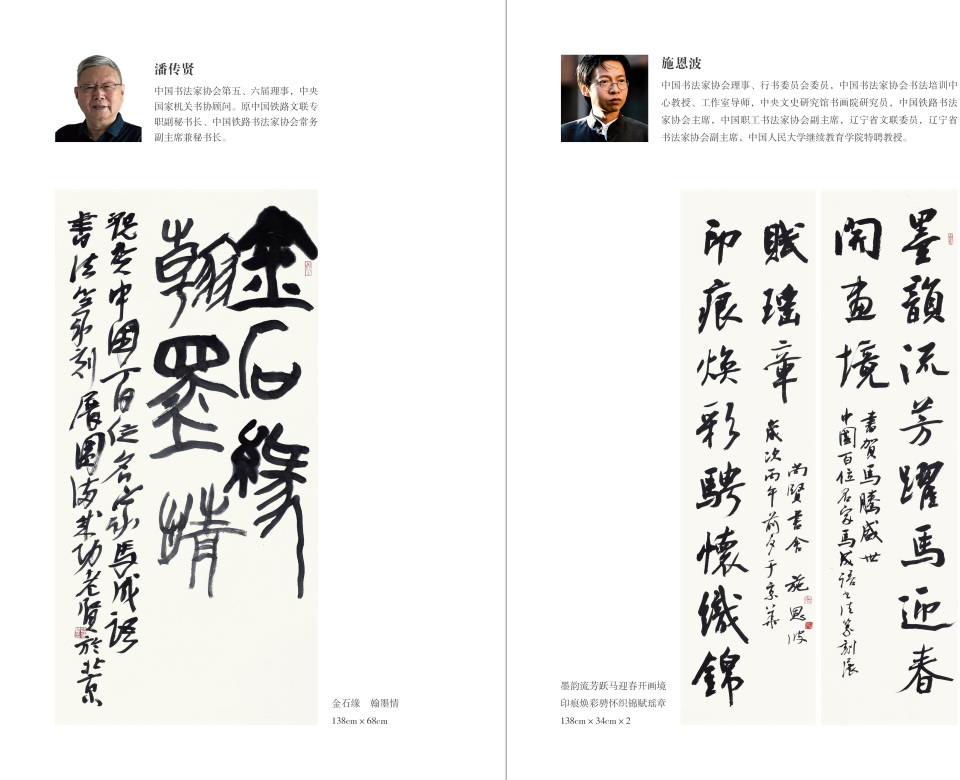 潘传贤
中国书法家协会第五、六届理事，中央
国家机关书协顾问。原中国铁路文联专
职副秘书长、中国铁路书法家协会常务
副主席兼秘书长。
金石缘
翰墨情
祝贺中国百位名家马成语
书法篆刻展圆满成功老贤于北京
金石缘　翰墨情
138cm × 68cm
施恩波
中国书法家协会理事、行书委员会委员，中国书法家协会书法培训中
心教授、工作室导师，中央文史研究馆书画院研究员，中国铁路书法
家协会主席，中国职工书法家协会副主席，辽宁省文联委员，辽宁省
书法家协会副主席，中国人民大学继续教育学院特聘教授。
墨韻流芳躍馬迎春
開畫境
書賀馬騰盛世
中國百位名家馬成語書法篆刻展
印痕煥彩騁懷織錦
賦瑤章
歲次丙午前夕于京華
尚賢書舍　施恩波
墨韵流芳跃马迎春开画境
印痕焕彩骋怀织锦赋瑶章
138cm × 34cm × 2